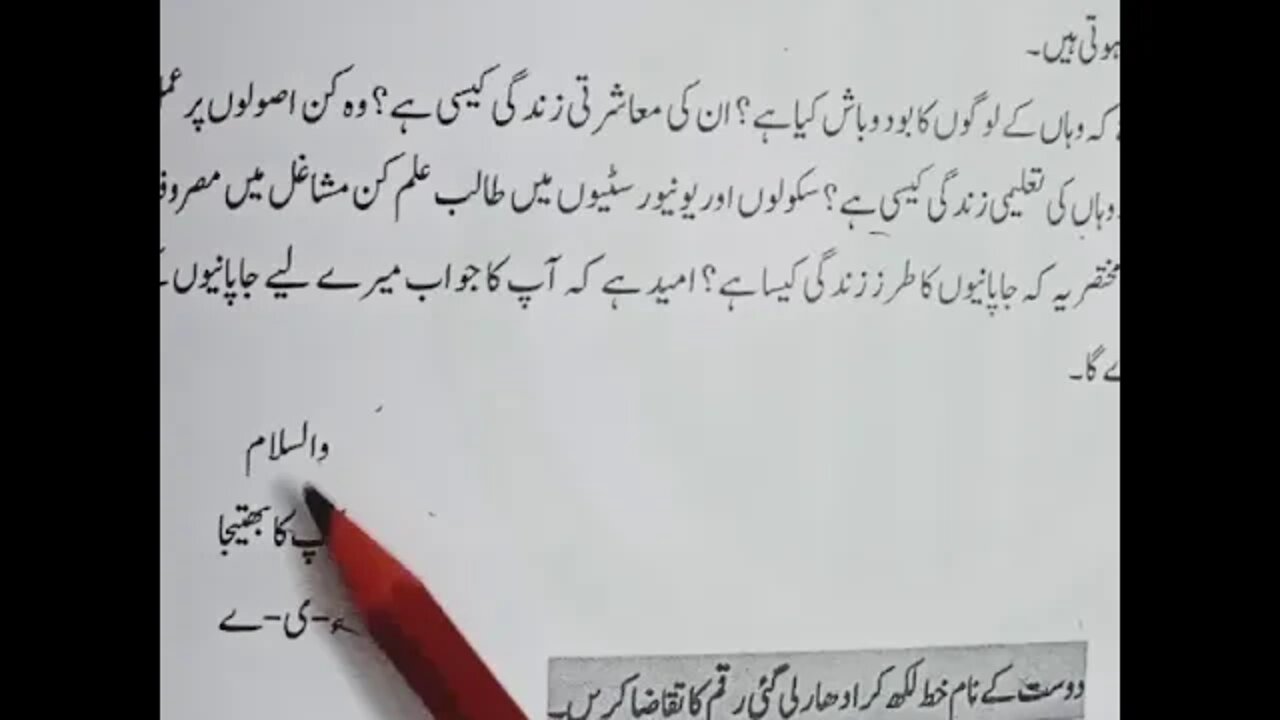 ہوتی ہیں۔
کہ وہاں کے لوگوں کا بود و باش کیا ہے؟ ان کی معاشرتی زندگی کیسی ہے؟ وہ کن اصولوں پر
وہاں کی تعلیمی زندگی کیسی ہے؟ سکولوں اور یونیورسٹیوں میں طالب علم کن مشاغل میں
مختصر یہ کہ جاپانیوں کا طرز زندگی کیسا ہے؟ امید ہے کہ آپ کا جواب میرے لیے جاپانیوں
گا۔
والسلام
کا بھتیجا
ء-ی-ے
دوست کے نام خط لکھ کر ادھار لی گئی رقم کا تقاضا کریں۔